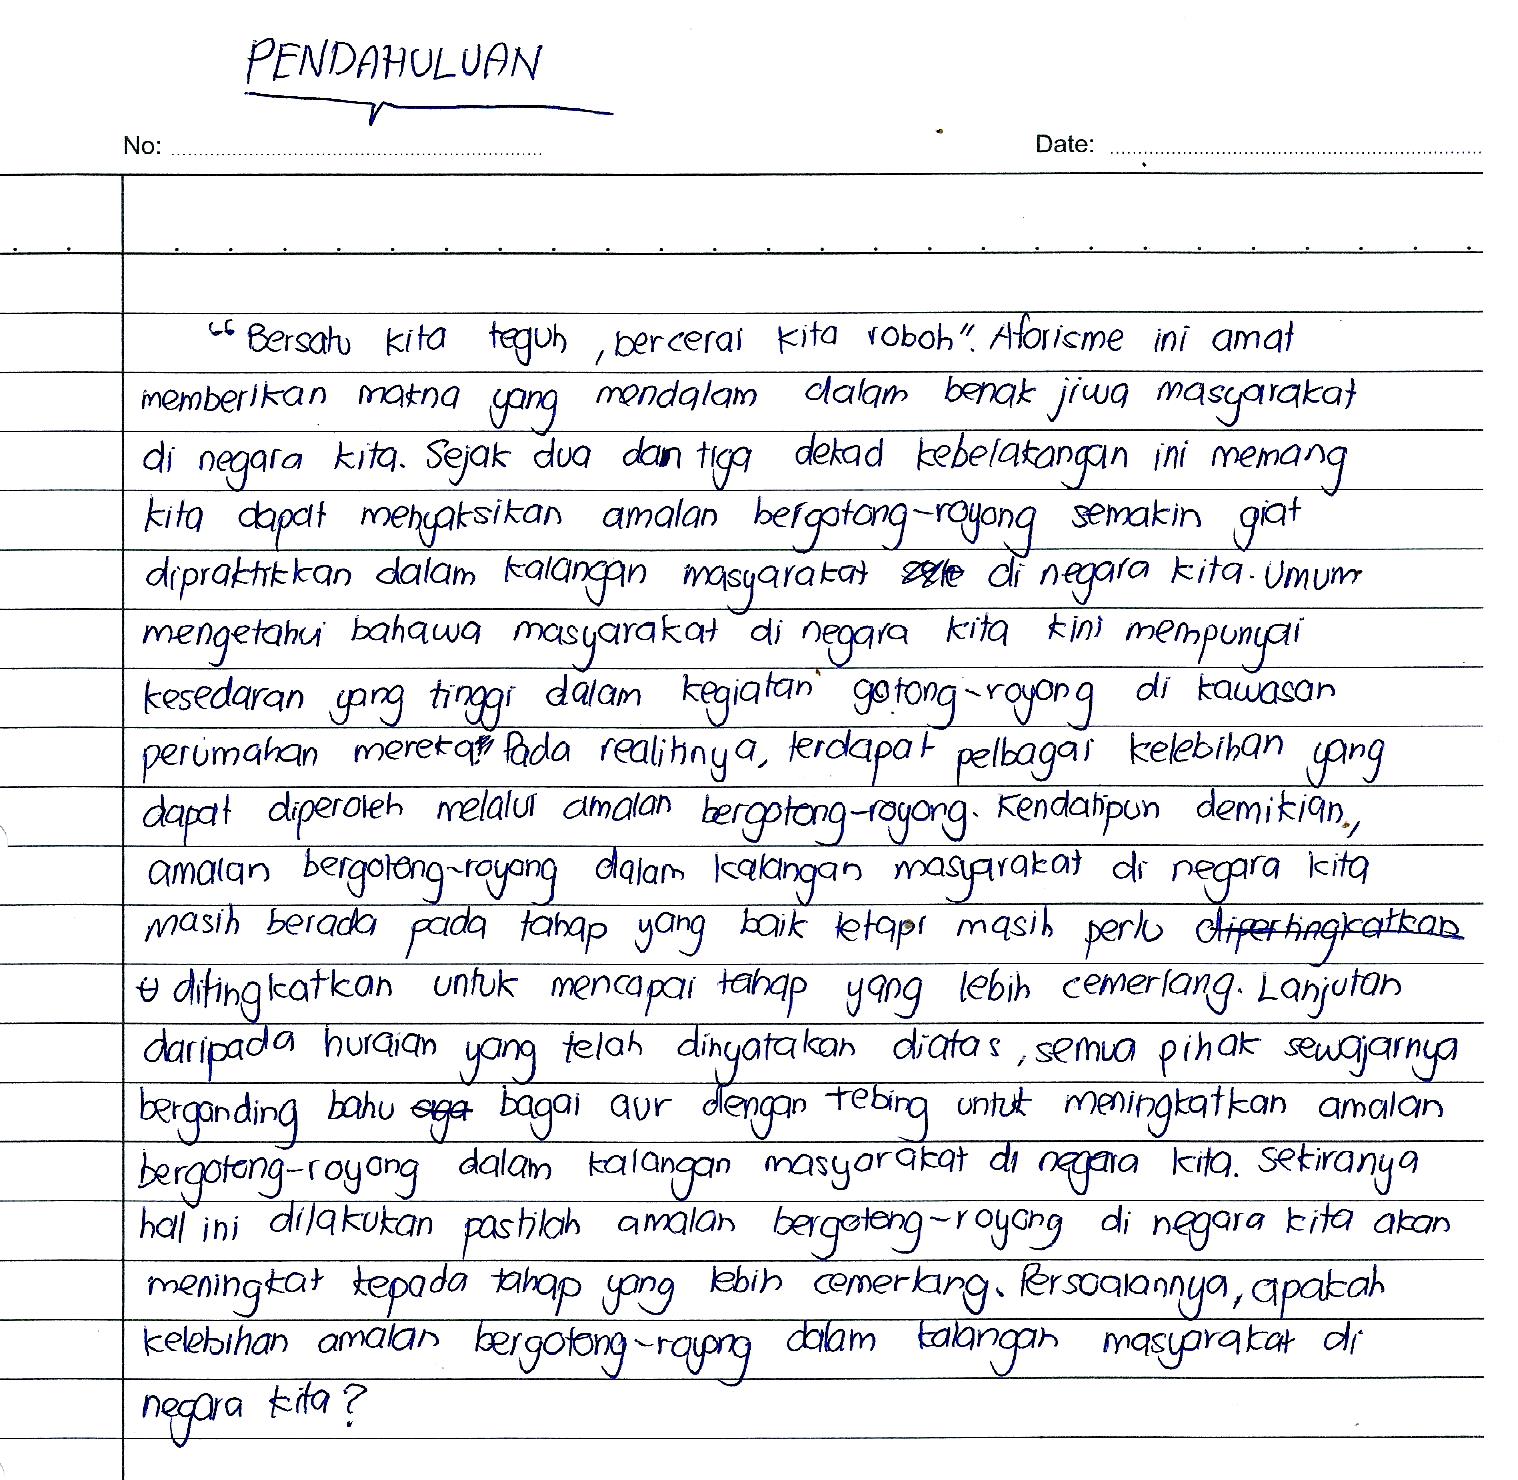 PENDAHULUAN
No: Date:
"Bersatu kita teguh, bercerai kita roboh". Aforisme ini amat
memberikan makna yang mendalam dalam benak jiwa masyarakat
di negara kita. Sejak dua dan tiga dekad kebelakangan ini memang
kita dapat menyaksikan amalan bergotong-royong semakin giat
dipraktikkan dalam kalangan masyarakat di negara kita. Umum
mengetahui bahawa masyarakat di negara kita kini mempunyai
kesedaran yang tinggi dalam kegiatan gotong-royong di kawasan
perumahan mereka. Pada realitinya, terdapat pelbagai kelebihan yang
dapat diperoleh melalui amalan bergotong-royong. Kendatipun demikian,
amalan bergotong-royong dalam kalangan masyarakat di negara kita
masih berada pada tahap yang baik tetapi masih perlu dipertingkatkan
ditingkatkan untuk mencapai tahap yang lebih cemerlang. Lanjutan
daripada huraian yang telah dinyatakan diatas, semua pihak sewajarnya
berganding bahu bagai aur dengan tebing untuk meningkatkan amalan
bergotong-royong dalam kalangan masyarakat di negara kita. Sekiranya
hal ini dilakukan pastilah amalan bergotong-royong di negara kita akan
meningkat kepada tahap yang lebih cemerlang. Persoalannya, apakah
kelebihan amalan bergotong-royong dalam kalangan masyarakat di
negara kita?